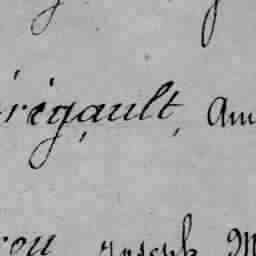 régault, Am
rou Joseph M